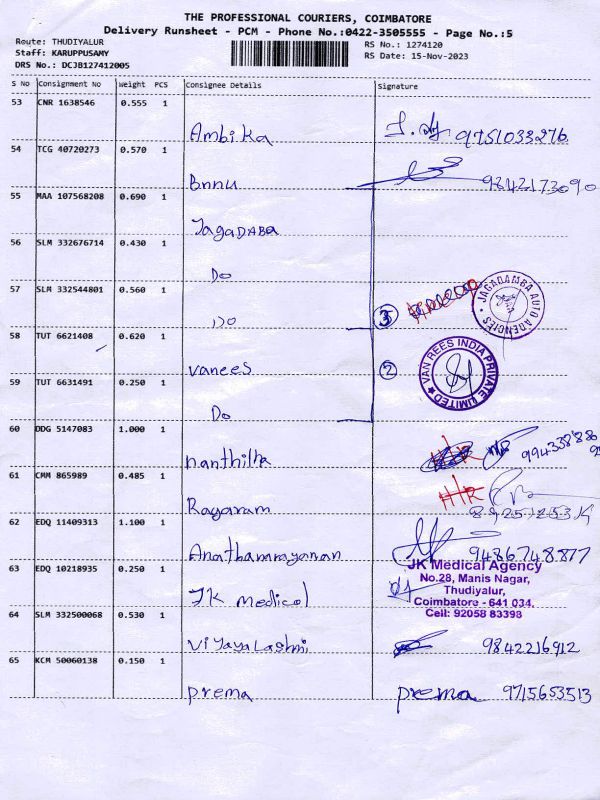 THE PROFESSIONAL COURIERS, COIMBATORE
Delivery Runsheet - PCM - Phone No.:0422-3505555 - Page No.:5
Route: THUDIYALUR
RS No.: 1274120
Staff: KARUPPUSAMY
RS Date: 15-Nov-2023
DRS No.: DCJB127412005
S No Consignment No Weight PCS Consignee Details Signature
53 CNR 1638546 0.555 1
Ambika 9751033276
54 TCG 40720273 0.570 1
Bnnu 9842173090
55 MAA 107568208 0.690 1
JagaDABA
56 SLM 332676714 0.430 1
Do
57 SLM 332544801 0.560 1
Do 3 JAGADAMBA AUTO AGENCIES
58 TUT 6621408 0.620 1
vanees 2 VAN REES INDIA PRIVATE LIMITED
59 TUT 6631491 0.250 1
Do
60 DDG 5147083 1.000 1
nanthilha
61 CMM 865989 0.485 1
Rayaram
62 EDQ 11409313 1.100 1
Anathanarayanan 9486748877
63 EDQ 10218935 0.250 1
JK Medical Agency
No.28, Manis Nagar,
Thudiyalur,
JK medicol
Coimbatore - 641 034.
Cell: 92058 83398
64 SLM 332500068 0.530 1
Vijayalashmi 9842216912
65 KCM 50060138 0.150 1
prema prema 9715653513